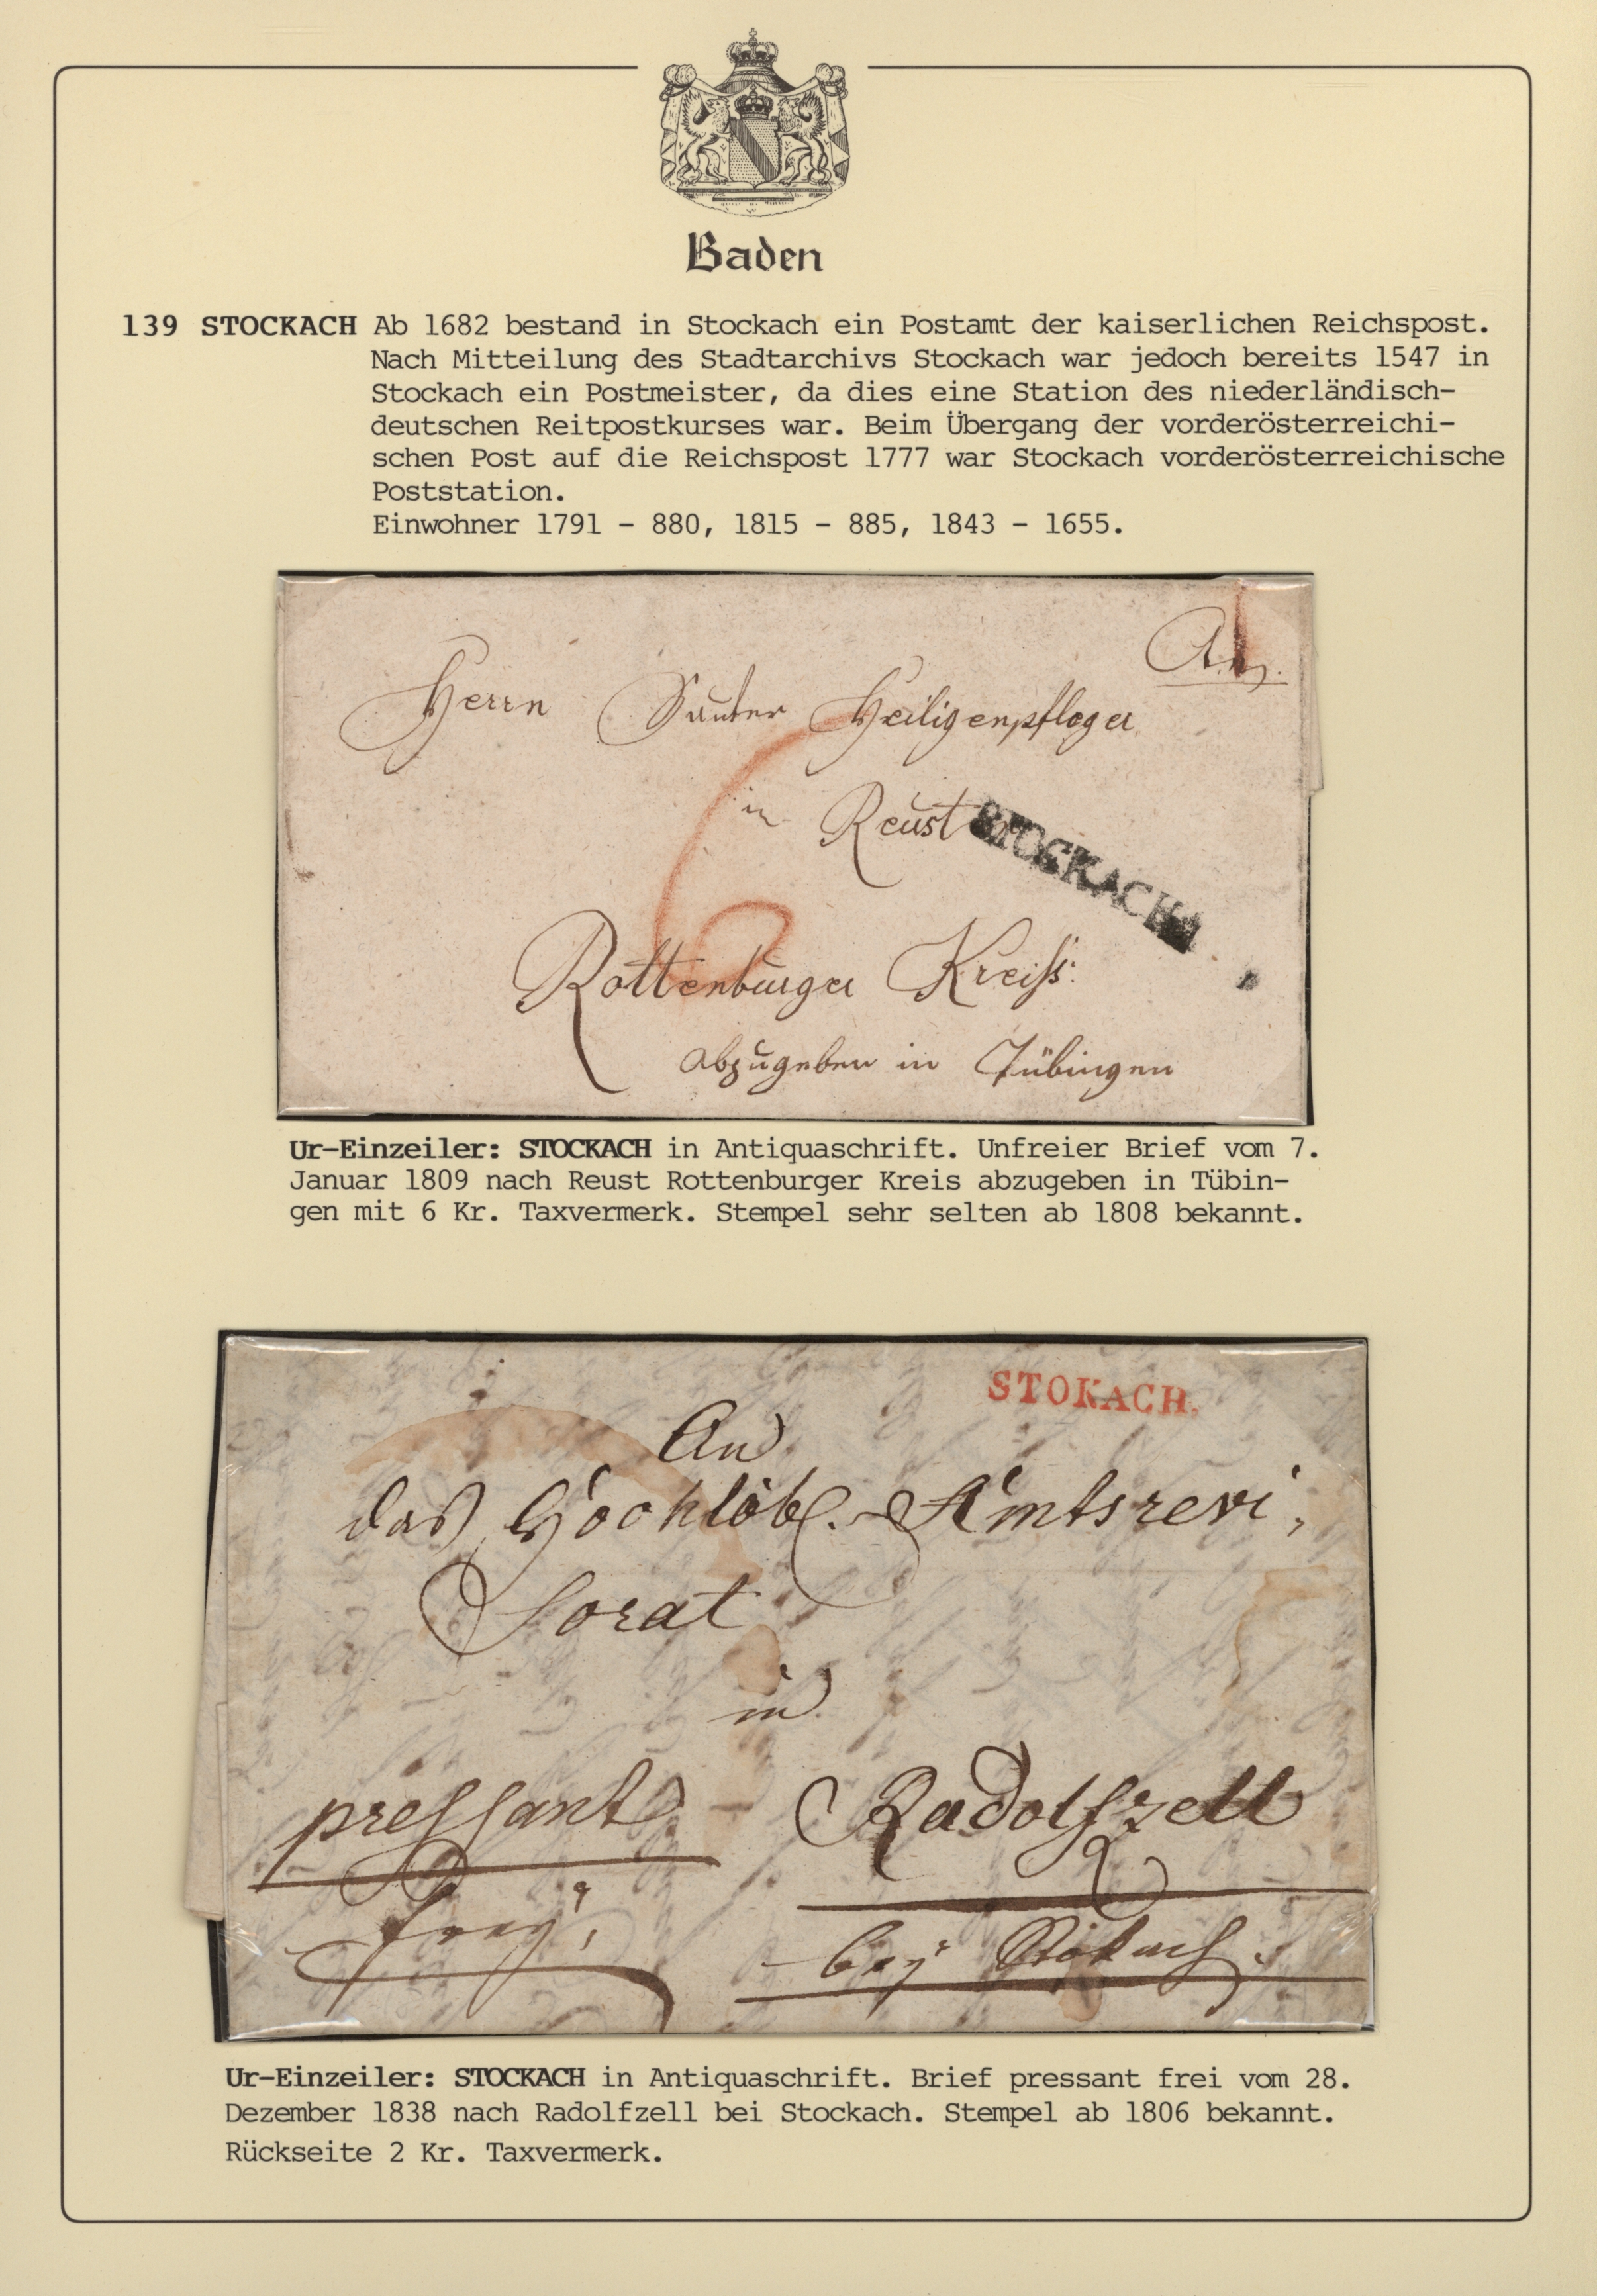 Baden
139 STOCKACH Ab 1682 bestand in Stockach ein Postamt der kaiserlichen Reichspost.
Nach Mitteilung des Stadtarchivs Stockach war jedoch bereits 1547 in
Stockach ein Postmeister, da dies eine Station des niederländisch-
deutschen Reitpostkurses war. Beim Übergang der vorderösterreichi-
schen Post auf die Reichspost 1777 war Stockach vorderösterreichische
Poststation.
Einwohner 1791 - 880, 1815 - 885, 1843 - 1655.
Herrn Sauter Heiligenpfleger
in Reust
STOCKACH
6
Rottenburger Kreiss:
abzugeben in Tübingen
Ur-Einzeiler: STOCKACH in Antiquaschrift. Unfreier Brief vom 7.
Januar 1809 nach Reust Rottenburger Kreis abzugeben in Tübin-
gen mit 6 Kr. Taxvermerk. Stempel sehr selten ab 1808 bekannt.
STOKACH.
An
das Hochlöbl. Amtsrevi,
sorat
in
pressant Radolfzell
frey,
bey Stokach.
Ur-Einzeiler: STOCKACH in Antiquaschrift. Brief pressant frei vom 28.
Dezember 1838 nach Radolfzell bei Stockach. Stempel ab 1806 bekannt.
Rückseite 2 Kr. Taxvermerk.